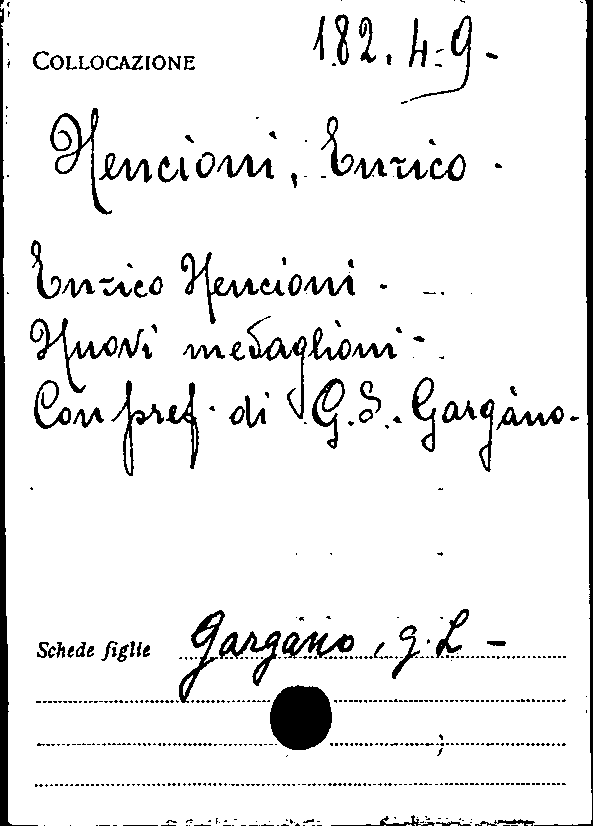 COLLOCAZIONE 182.4.9.
Nencioni, Enrico.
Enrico Nencioni.
Nuovi medaglioni.
Con pref. di G.S. Gargàno.
Schede figlie Gargàno, G. L -